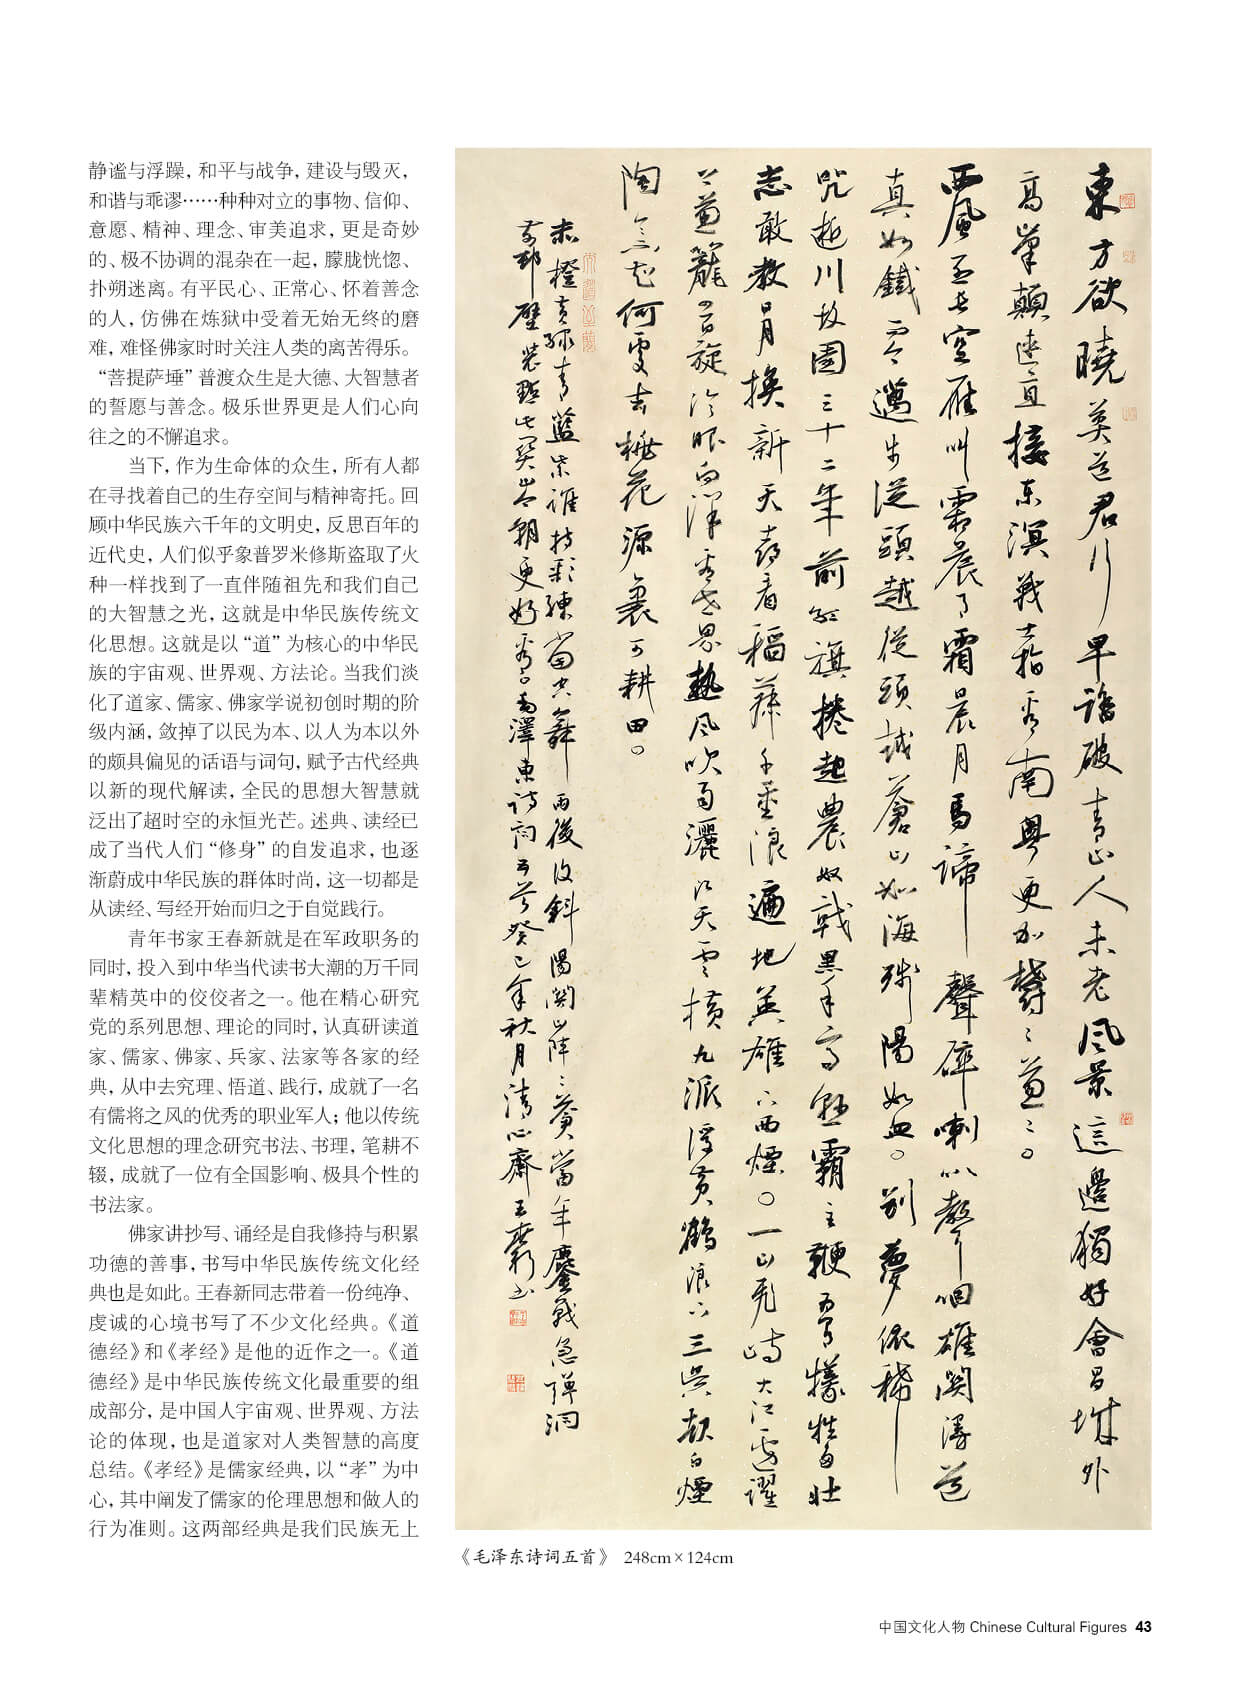 静谧与浮躁，和平与战争，建设与毁灭，
和谐与乖谬……种种对立的事物、信仰、
意愿、精神、理念、审美追求，更是奇妙
的、极不协调的混杂在一起，朦胧恍惚、
扑朔迷离。有平民心、正常心、怀着善念
的人，仿佛在炼狱中受着无始无终的磨
难，难怪佛家时时关注人类的离苦得乐。
“菩提萨埵”普渡众生是大德、大智慧者
的誓愿与善念。极乐世界更是人们心向
往之的不懈追求。
当下，作为生命体的众生，所有人都
在寻找着自己的生存空间与精神寄托。回
顾中华民族六千年的文明史，反思百年的
近代史，人们似乎象普罗米修斯盗取了火
种一样找到了一直伴随祖先和我们自己
的大智慧之光，这就是中华民族传统文
化思想。这就是以“道”为核心的中华民
族的宇宙观、世界观、方法论。当我们淡
化了道家、儒家、佛家学说初创时期的阶
级内涵，敛掉了以民为本、以人为本以外
的颇具偏见的话语与词句，赋予古代经典
以新的现代解读，全民的思想大智慧就
泛出了超时空的永恒光芒。述典、读经已
成了当代人们“修身”的自发追求，也逐
渐蔚成中华民族的群体时尚，这一切都是
从读经、写经开始而归之于自觉践行。
青年书家王春新就是在军政职务的
同时，投入到中华当代读书大潮的万千同
辈精英中的佼佼者之一。他在精心研究
党的系列思想、理论的同时，认真研读道
家、儒家、佛家、兵家、法家等各家的经
典，从中去究理、悟道、践行，成就了一名
有儒将之风的优秀的职业军人；他以传统
文化思想的理念研究书法、书理，笔耕不
辍，成就了一位有全国影响、极具个性的
书法家。
佛家讲抄写、诵经是自我修持与积累
功德的善事，书写中华民族传统文化经
典也是如此。王春新同志带着一份纯净、
虔诚的心境书写了不少文化经典。《道
德经》和《孝经》是他的近作之一。《道
德经》是中华民族传统文化最重要的组
成部分，是中国人宇宙观、世界观、方法
论的体现，也是道家对人类智慧的高度
总结。《孝经》是儒家经典，以“孝”为中
心，其中阐发了儒家的伦理思想和做人的
行为准则。这两部经典是我们民族无上
東方欲曉莫道君行早踏破青山人未老風景這邊獨好會昌城外
高峯顛連直接東溟戰士指看南粵更加鬱鬱蔥蔥。
西風烈長空雁叫霜晨月霜晨月馬蹄聲碎喇叭聲咽雄關漫道
真如鐵而今邁步從頭越從頭越蒼山如海殘陽如血。別夢依稀
咒逝川故園三十二年前紅旗捲起農奴戟黑手高懸霸主鞭爲有犧牲多壯
志敢教日月換新天喜看稻菽千重浪遍地英雄下夕煙。一山飛峙大江邊躍
上蔥籠四百旋冷眼向洋看世界熱風吹雨灑江天雲橫九派浮黃鶴浪下三吳起白煙
陶令不知何處去桃花源裏可耕田。
赤橙黃綠青藍紫誰持彩練當空舞雨後復斜陽關山陣陣蒼當年鏖戰急彈洞
前村壁裝點此關山今朝更好看毛澤東詩詞五首癸巳年秋月清心齋王春新書
《毛泽东诗词五首》 248cm×124cm
中国文化人物 Chinese Cultural Figures 43